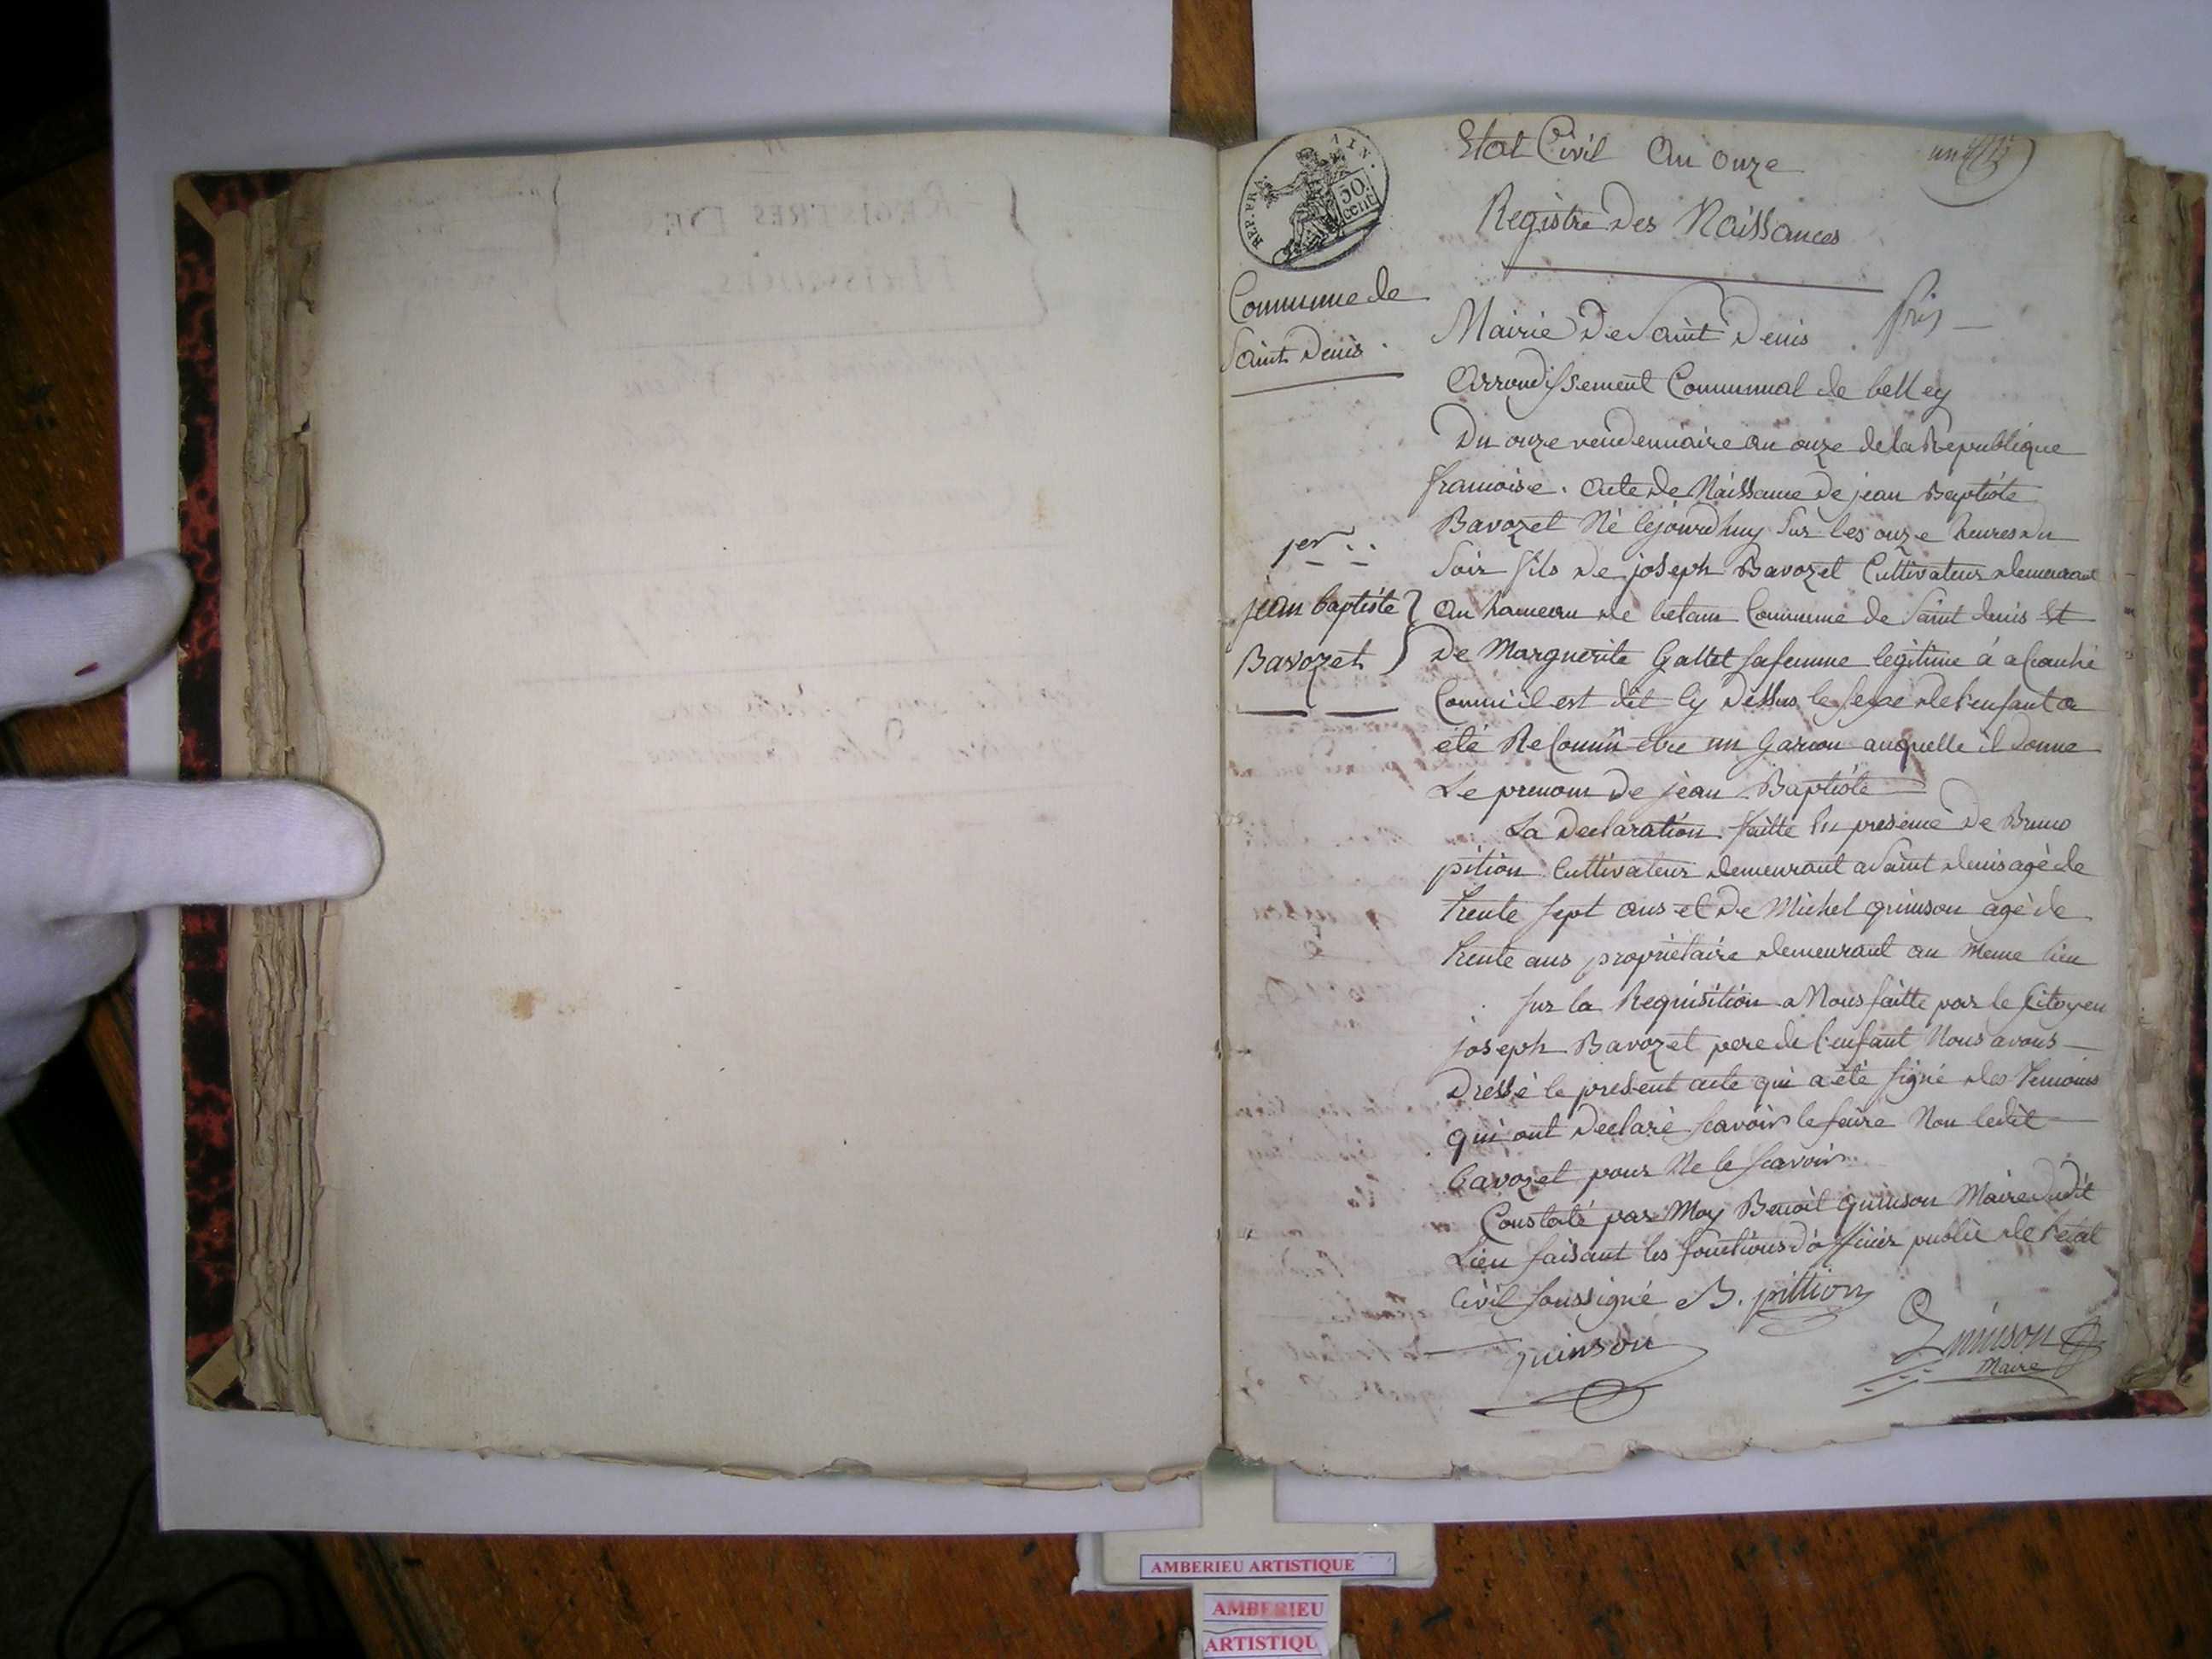 Etat Civil An onze
Registre Des Naissances
REP. FRA. AIN.
50 cent
Commune de
Saint Denis
Mairie De Saint Denis
Arrondissement Communal de belley
Du onze vendemiaire an onze de la Republique
francoise. Acte de Naissance de jean Baptiste
Bavozet Né Cejourdhuy sur les onze heures du
Soir fils de joseph Bavozet Cultivateur demeurant
1er
jean baptiste
Bavozet
au hameau de betam Commune de Saint denis Et
De Marguerite Gallet sa femme legitime á acouché
Comme il est dit Cy Dessus le sexe de l'enfant a
été Reconnü etre un Garcon auquelle il donne
Le prenom de jean Baptiste
La Declaration faitte En presence De Bruno
pition Cultivateur demeurant a Saint denis agé de
trente sept ans et De Michel quinson agé de
trente ans propriétaire demeurant au meme lieu
sur la Requisition a Nous faitte par le Citoyen
joseph Bavozet pere de l'enfant Nous avons
Dressé le present acte qui a été signé des temoins
qui ont Declaré scavoir le faire Non ledit
bavozet pour Ne le scavoir
Constaté par Moy Benoit quinson Maire dudit
Lieu faisant les fonctions d'officier public de l'etat
Civil soussigné B. pittion
quinson
Quinson
Maire
AMBERIEU ARTISTIQUE
AMBERIEU
ARTISTIQU